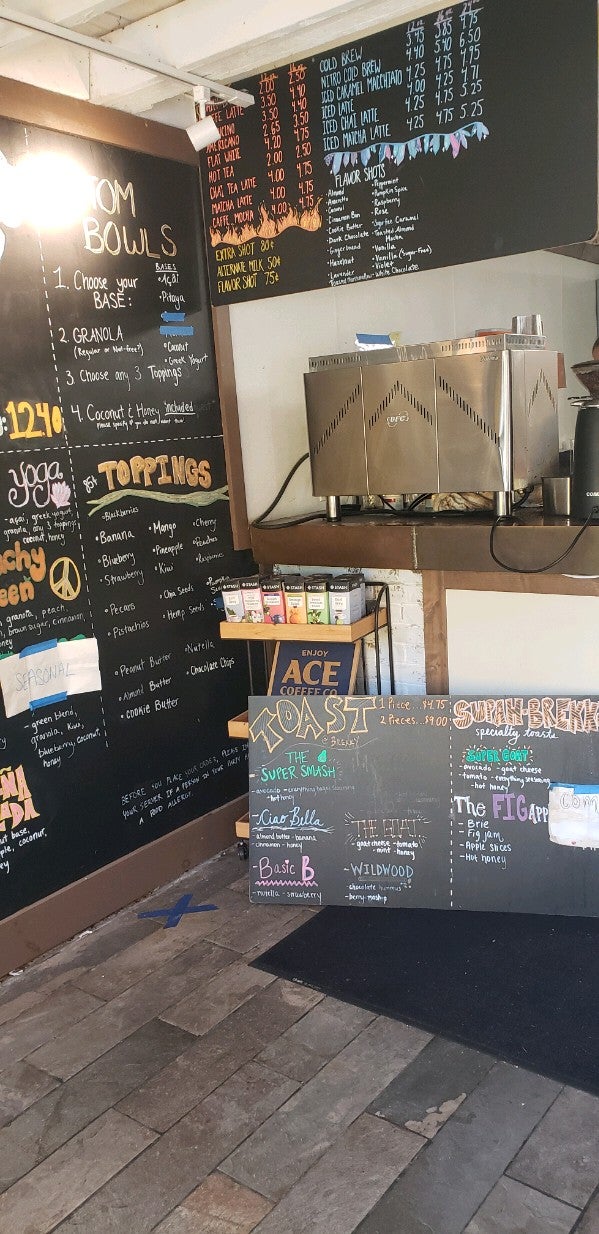 12 oz 16 oz 24 oz
COLD BREW 3.45 3.85 4.75
NITRO COLD BREW 4.40 5.40 6.50
ICED CARAMEL MACCHIATO 4.25 4.75
ICED LATTE 4.00 4.25
ICED CHAI LATTE 4.25 4.75 5.25
ICED MATCHA LATTE 4.25 4.75 5.25
LATTE
AMERICANO
FLAT WHITE
HOT TEA 2.00 2.50
CHAI TEA LATTE 4.00 4.75
MATCHA LATTE 4.00 4.75
CAFFE MOCHA 4.00 4.75
EXTRA SHOT 80¢
ALTERNATE MILK 50¢
FLAVOR SHOT 75¢
FLAVOR SHOTS
• Almond
• Amaretto
• Caramel
• Cinnamon Bun
• Cookie Butter
• Dark Chocolate
• Gingerbread
• Hazelnut
• Lavender
Toasted Marshmallow
• Peppermint
• Pumpkin Spice
• Raspberry
• Rose
• Sugar Free Caramel
• Toasted Almond
Mocha
• Vanilla
• Vanilla (Sugar-Free)
• Violet
• White Chocolate
TOM
BOWLS
1. Choose your
BASE:
BASES
• Açaí
• Pitaya
• Coconut
• Greek Yogurt
2. GRANOLA
(Regular or Nut-free?)
3. Choose any 3 Toppings
4. Coconut & Honey included
Please specify if you do not want them!
12.40
yoga
- açaí, greek yogurt,
granola, any 3 toppings
coconut, honey
chy
een
granola, peach,
brown sugar, cinnamon,
honey
SEASONAL
- green blend,
granola, kiwi,
blueberry, coconut,
honey
ÑA
ADA
base,
coconut,
TOPPINGS
• Blackberries
• Banana
• Blueberry
• Strawberry
• Pecans
• Pistachios
• Peanut Butter
• Almond Butter
• COOKIE Butter
• Mango
• Pineapple
• Kiwi
• Chia Seeds
• Hemp Seeds
• Nutella
• Chocolate Chips
• Cherry
• Peaches
• Raspberries
• Pumpkin
BEFORE YOU PLACE YOUR ORDER, PLEASE IN
YOUR SERVER IF A PERSON IN YOUR PARTY
A FOOD ALLERGY.
STASH STASH STASH STASH STASH
ENJOY
ACE
COFFEE CO.
TOAST
& BREKKY
1 Piece... $4.75
2 Pieces... $9.00
THE
SUPER SMASH
- avocado - everything bagel seasoning
- hot honey
Ciao Bella
almond butter - banana
- cinnamon - honey
THE GOAT
goat cheese - tomato
- mint - honey
- Basic B
- nutella - strawberry
- WILDWOOD
chocolate hummus
- berry mash-up
SUPAH-BREKK
specialty toasts
SUPER GOAT
avocado - goat cheese
tomato - everything seasoning
- hot honey
The FIG APP
- Brie
- Fig jam
- Apple slices
- Hot honey
COM